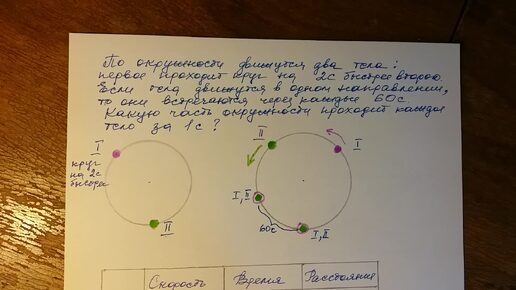 По окружности движутся два тела:
первое проходит круг на 2с быстрее второго.
Если тела движутся в одном направлении,
то они встречаются через каждые 60с.
Какую часть окружности проходит каждое
тело за 1с?
I
круг
на 2с
быстрее
II
II
I
I, II
60с
I, II
Скорость Время Расстояние